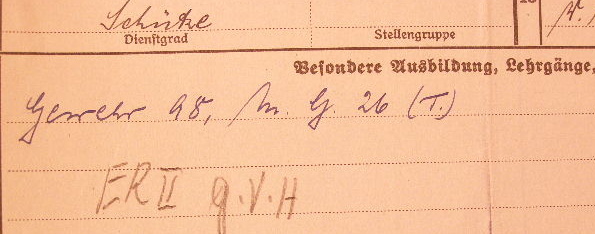 Schütze
Dienstgrad
Stellengruppe
Besondere Ausbildung, Lehrgänge,
Gewehr 98, M. G. 26 (T.)
ER II g.V.H